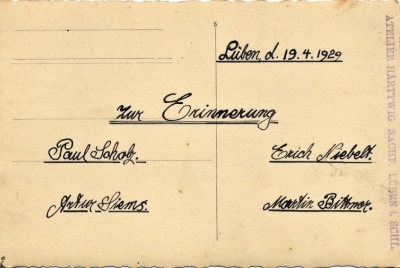 Lüben, d. 19.4.1929
Zur Erinnerung
Paul Scholz. Erich Niebelt.
Artur Siems. Martin Bittner.
ATELIER HARTTWIG NACHF. LÜBEN I. SCHL.